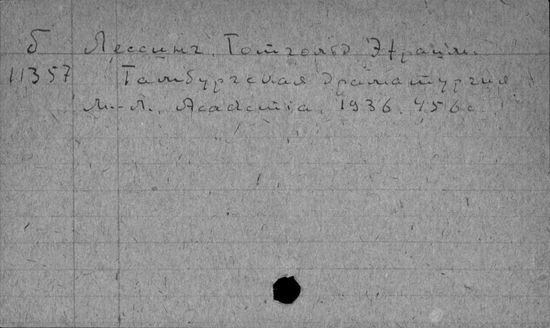 б Лессинг, Готгольд Эфраим.
11357 Гамбургская драматургия
М.-Л., Academia, 1936. 456 с.